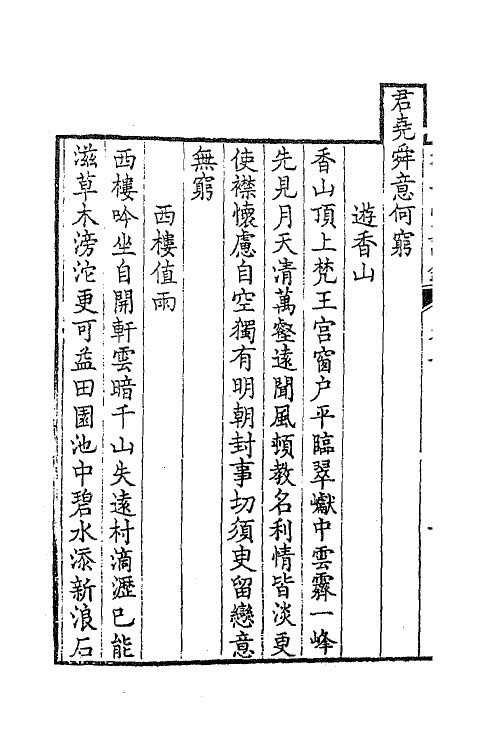 君堯舜意何窮
遊香山
香山頂上梵王宫窗户平臨翠巘中雲霽一峰
先見月天清萬壑遠聞風頓教名利情皆淡更
使襟懷慮自空獨有明朝封事切須臾留戀意
無窮
西樓值雨
西樓吟坐自開軒雲暗千山失遠村滴瀝已能
滋草木滂沱更可益田園池中碧水添新浪石